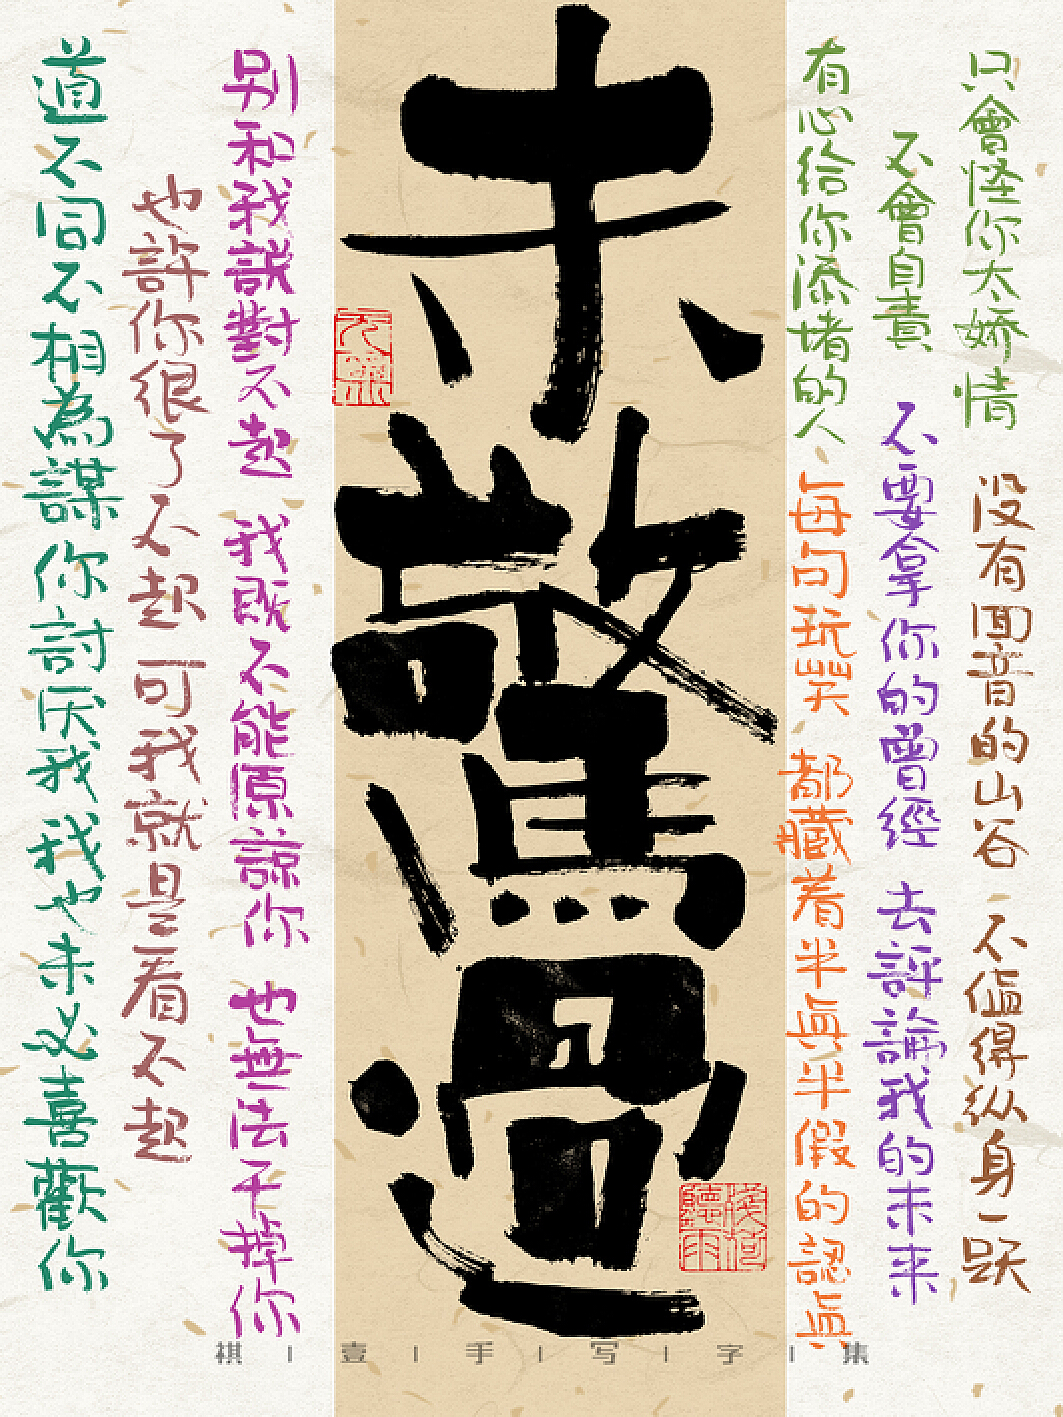 只會怪你太娇情 没有囬音的山谷 不值得纵身一跃
不會自責 不要拿你的曾經 去評論我的未来
有心给你添堵的人 每句玩笑 都藏着半真半假的認真
未驚過
别和我說對不起 我既不能原諒你 也無法干掉你
也許你很了不起 可我就是看不起
道不同不相為謀 你討厌我我也未必喜歡你
祺|壹|手|写|字|集